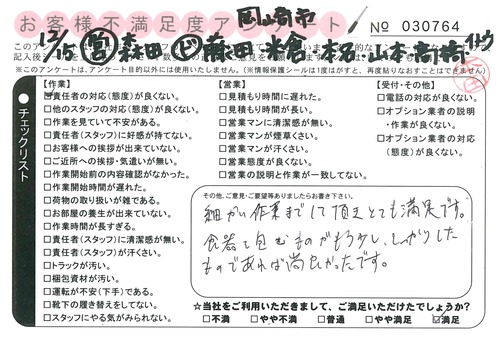 お客様不満足度アンケート
岡崎市
№ 030764
12/15 営 森田 作 森田 米倉 本名 山本 高橋
※このアンケートは、アンケート目的以外には使用いたしません。(※情報保護シールは1度はがすと、再度貼りなおすことはできません。)
チェックリスト
【作業】
□責任者の対応(態度)が良くない。
□他のスタッフの対応(態度)が良くない。
□作業を見ていて不安がある。
□責任者(スタッフ)に好感が持てない。
□お客様への挨拶が出来ていない。
□ご近所への挨拶・気遣いが無い。
□作業開始前の内容確認がなかった。
□作業開始時間が遅れた。
□荷物の取り扱いが雑である。
□お部屋の養生が出来ていない。
□作業時間が長すぎる。
□責任者(スタッフ)に清潔感が無い。
□責任者(スタッフ)が汗くさい。
□トラックが汚い。
□梱包資材が汚い。
□運転が不安(下手)である。
□靴下の履き替えをしてない。
□スタッフにやる気がみられない。
【営業】
□見積もり時間に遅れた。
□見積もり時間が長い。
□営業マンに清潔感が無い。
□営業マンが煙草くさい。
□営業マンが汗くさい。
□営業態度が良くない。
□営業の説明と作業が一致してない。
【受付・その他】
□電話の対応が良くない。
□オプション業者の説明
・作業が良くない。
□オプション業者の対応
(態度)が良くない。
その他、ご意見・ご要望等ありましたらお書き下さい。
細かい作業までして頂きとても満足です。
食器を包むものがもう少し、しっかりした
ものであれば尚良かったです。
☆当社をご利用いただきまして、ご満足いただけてしょうか?
□不満 □やや不満 □普通 □やや満足 ☑満足